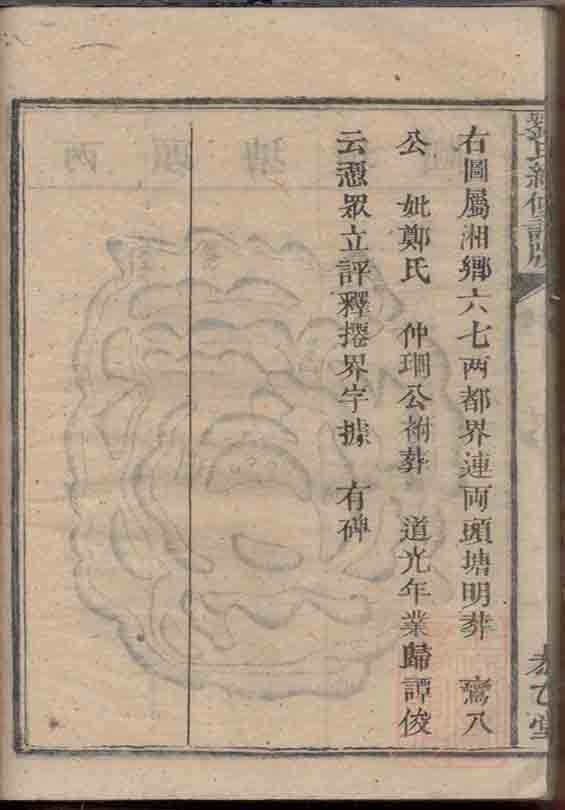 右圖屬湘鄉六七两都界連両頭塘明葬 鸞八
公 妣鄭氏 仲琱公祔葬 道光年業歸譚俊
云憑眾立評釋捲界字據 有碑